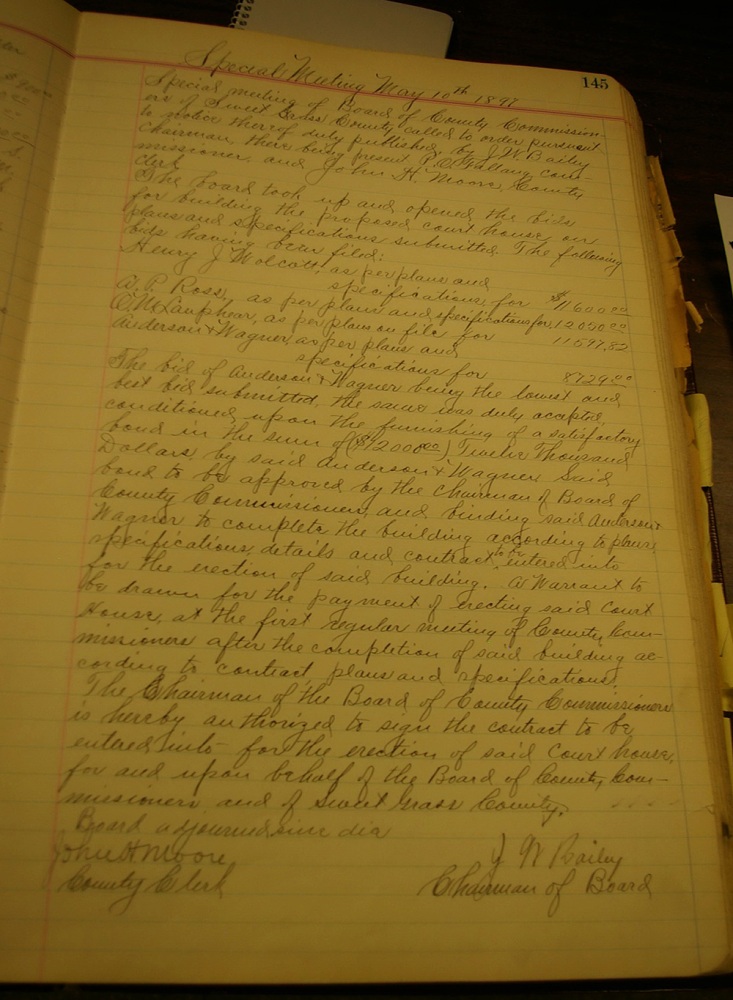 145
Special Meeting May 10th 1897
Special meeting of Board of County Commission-
ers of Sweet Grass County, called to order pursuant
to notice thereof duly published, by J. W. Bailey
Chairman, there being present P. O. com-
missioner, and John H. Moore, County
Clerk
The board took up and opened the bids
for building the proposed court house, on
plans and specifications submitted. The following
bids having been filed:
Henry J Wolcott, as per plans and
specifications, for $11600.00
A. P. Ross, as per plans and specifications for 12000.00
Lanphear, as per plans on file for 11597.82
Anderson & Wagner, as per plans and
specifications for 8729.00
The bid of Anderson & Wagner being the lowest and
best bid submitted, the same was duly accepted,
conditioned upon the furnishing of a satisfactory
bond in the sum of ($12000.00) Twelve Thousand
Dollars, by said Anderson & Wagner. Said
bond to be approved by the Chairman of Board of
County Commissioners, and binding said Anderson &
Wagner to complete the building according to plans,
specifications, details and contract to be entered into
for the erection of said building. A Warrant to
be drawn for the payment of erecting said Court
House, at the first regular meeting of County Com-
missioners after the completion of said building ac-
cording to contract, plans and specifications.
The Chairman of the Board of County Commissioners
is hereby authorized to sign the contract to be
entered into for the erection of said Court house,
for and upon behalf of the Board of County Com-
missioners and of Sweet Grass County.
Board adjourned sine dia
John H Moore J W Bailey
County Clerk Chairman of Board